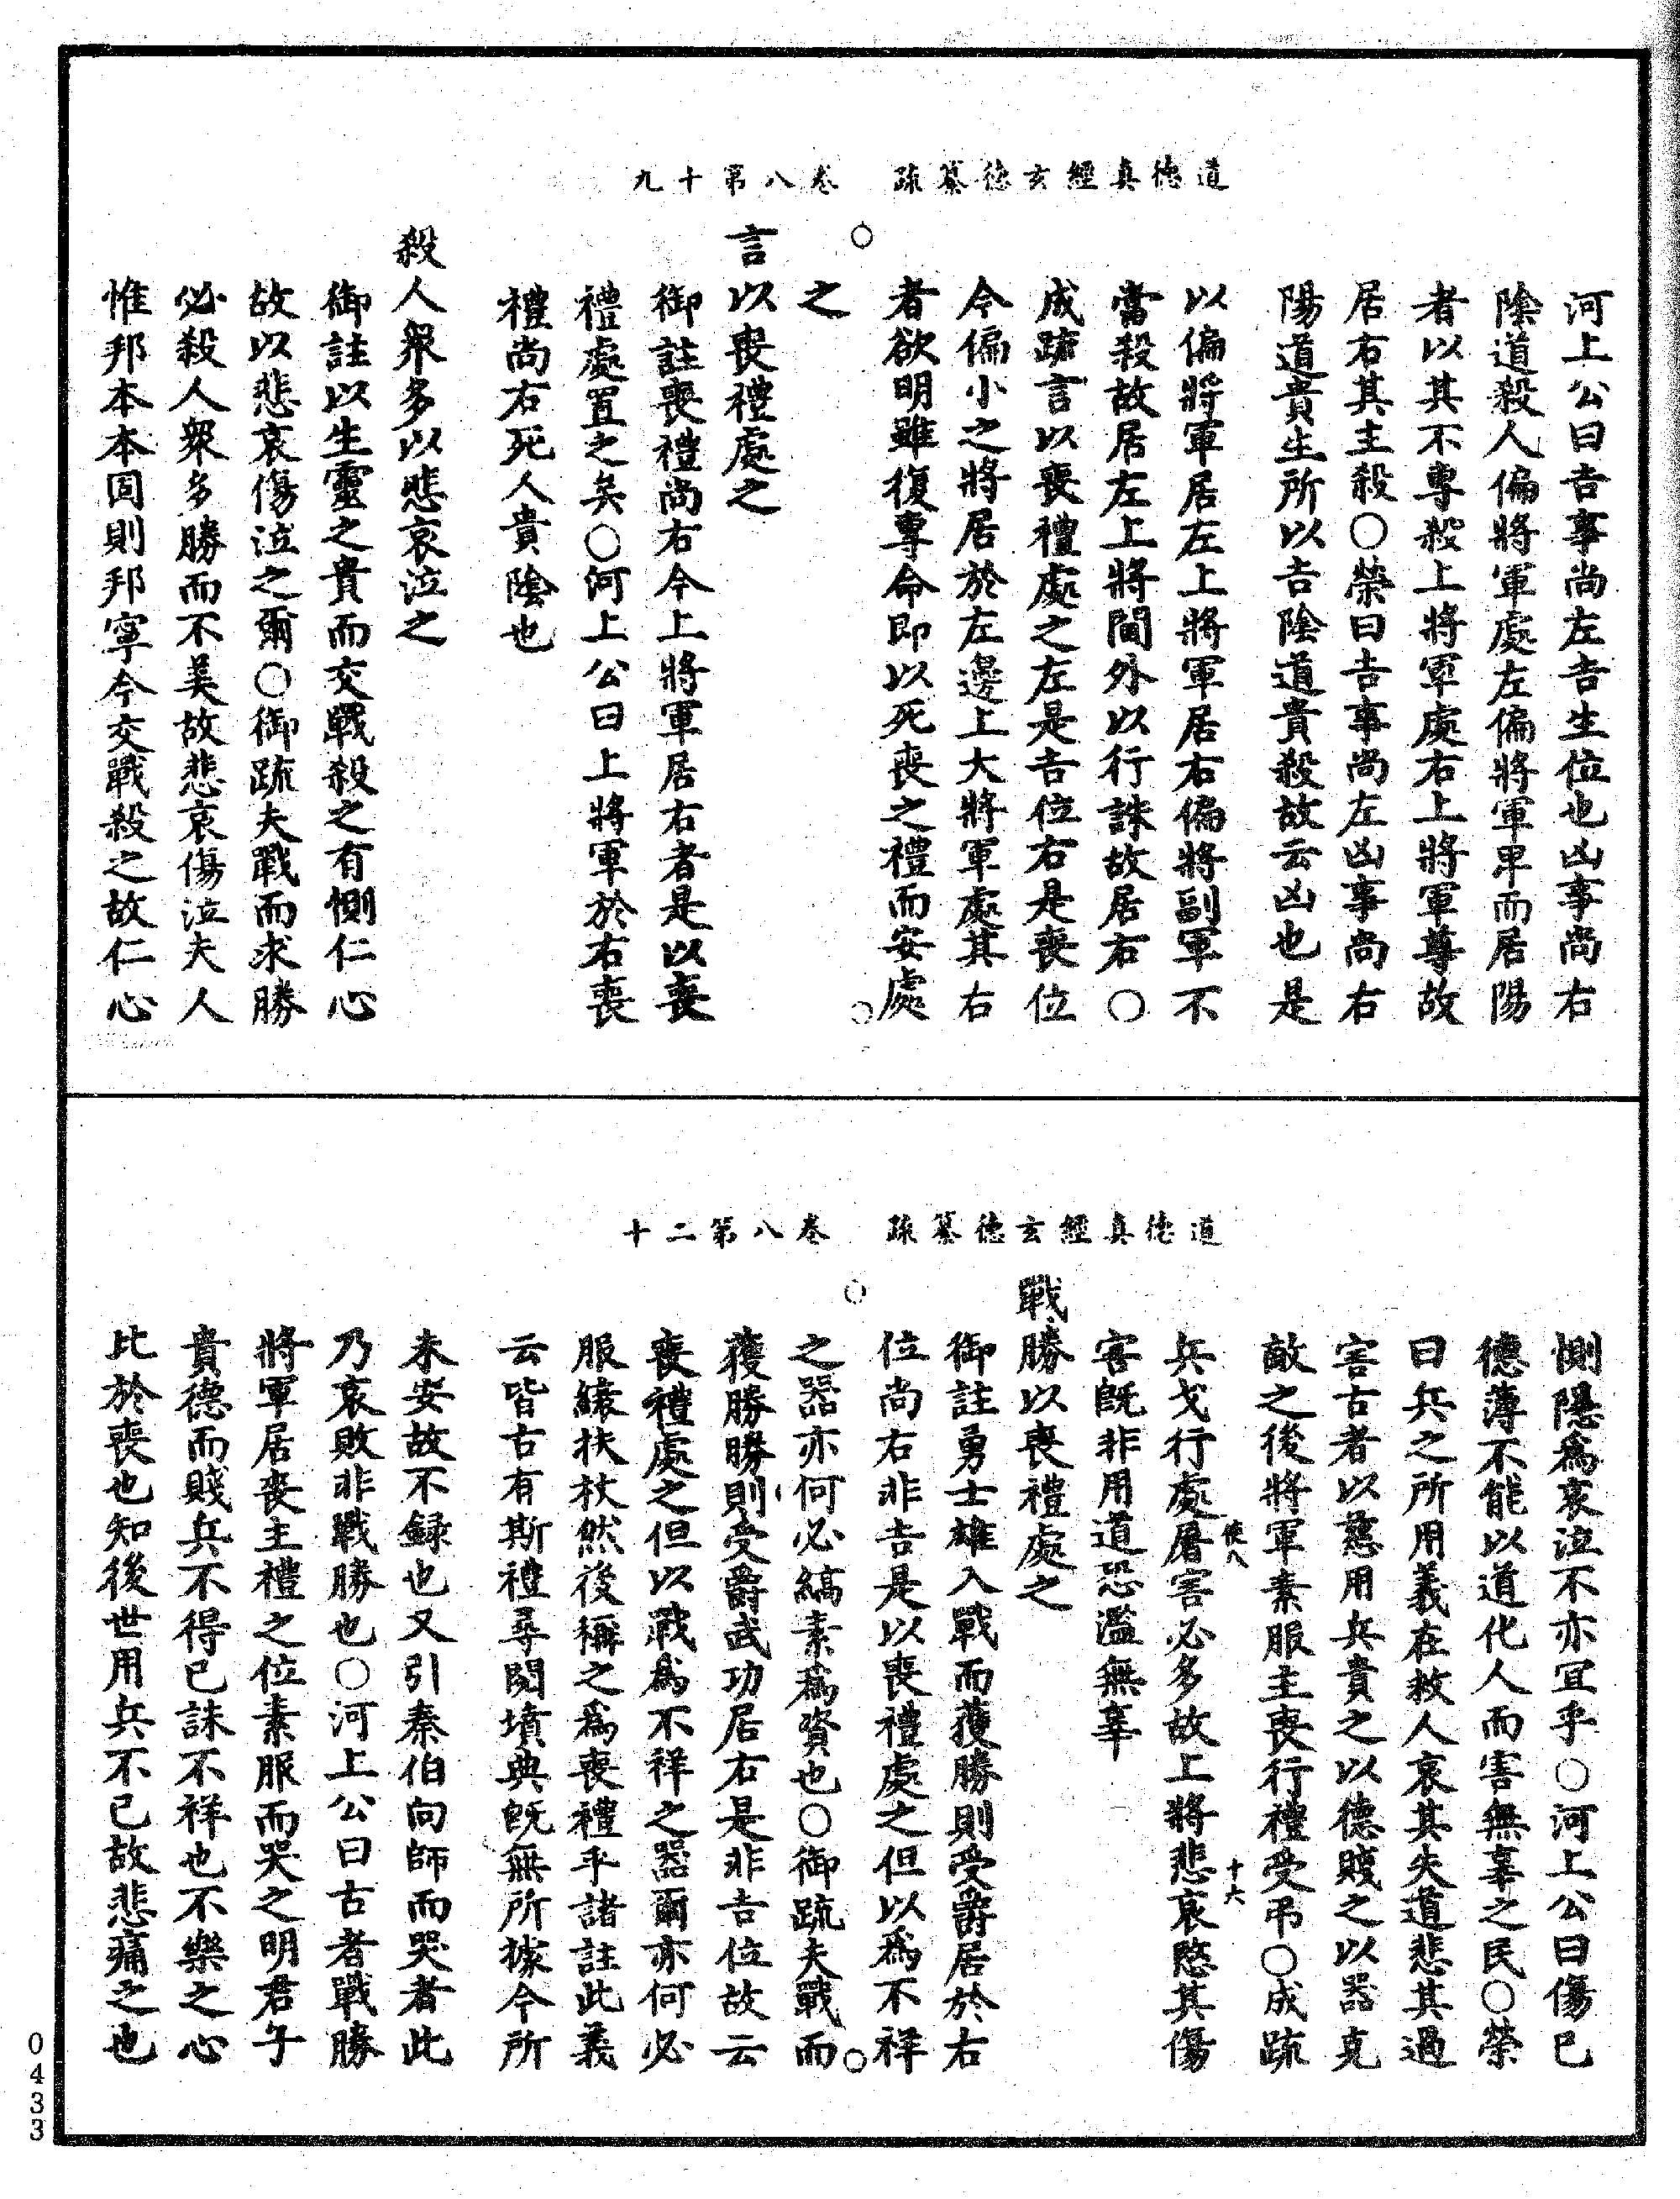 道德真經玄德纂疏　卷八第十九
河上公曰吉事尚左吉生位也凶事尚右
陰道殺人偏將軍處左偏將軍卑而居陽
者以其不專殺上將軍處右上將軍尊故
居右其主殺○榮曰吉事尚左凶事尚右
陽道貴生所以吉陰道貴殺故云凶也是
以偏將軍居左上將軍居右偏將副軍不
當殺故居左上將閫外以行誅故居右○
成疏言以喪禮處之左是吉位右是喪位
今偏小之將居於左邊上大將軍處其右
者欲明雖復專命即以死喪之禮而安處
之
言以喪禮處之
御註喪禮尚右今上將軍居右者是以喪
禮處置之矣○河上公曰上將軍於右喪
禮尚右死人貴陰也
殺人衆多以悲哀泣之
御註以生靈之貴而交戰殺之有惻仁心
故以悲哀傷泣之爾○御疏夫戰而求勝
必殺人衆多勝而不美故悲哀傷泣夫人
惟邦本本固則邦寧今交戰殺之故仁心
道德真經玄德纂疏　卷八第二十
惻隱爲哀泣不亦宜乎○河上公曰傷已
德薄不能以道化人而害無辜之民○榮
曰兵之所用義在救人哀其失道悲其過
害古者以慈用兵貴之以德賤之以器克
敵之後將軍素服主喪行禮受吊○成疏
使八　十六
兵戈行處屠害必多故上將悲哀愍其傷
害旣非用道恐濫無辜
戰勝以喪禮處之
御註勇士雄入戰而獲勝則受爵居於右
位尚右非吉是以喪禮處之但以爲不祥
之器亦何必縞素爲資也○御疏夫戰而
獲勝勝則受爵武功居右是非吉位故云
喪禮處之但以戰爲不祥之器爾亦何必
服縗扶杖然後稱之爲喪禮乎諸註此義
云皆古有斯禮尋閱墳典旣無所據今所
未安故不録也又引秦伯向師而哭者此
乃哀敗非戰勝也○河上公曰古者戰勝
將軍居喪主禮之位素服而哭之明君子
貴德而賤兵不得已誅不祥也不樂之心
比於喪也知後世用兵不已故悲痛之也
0433